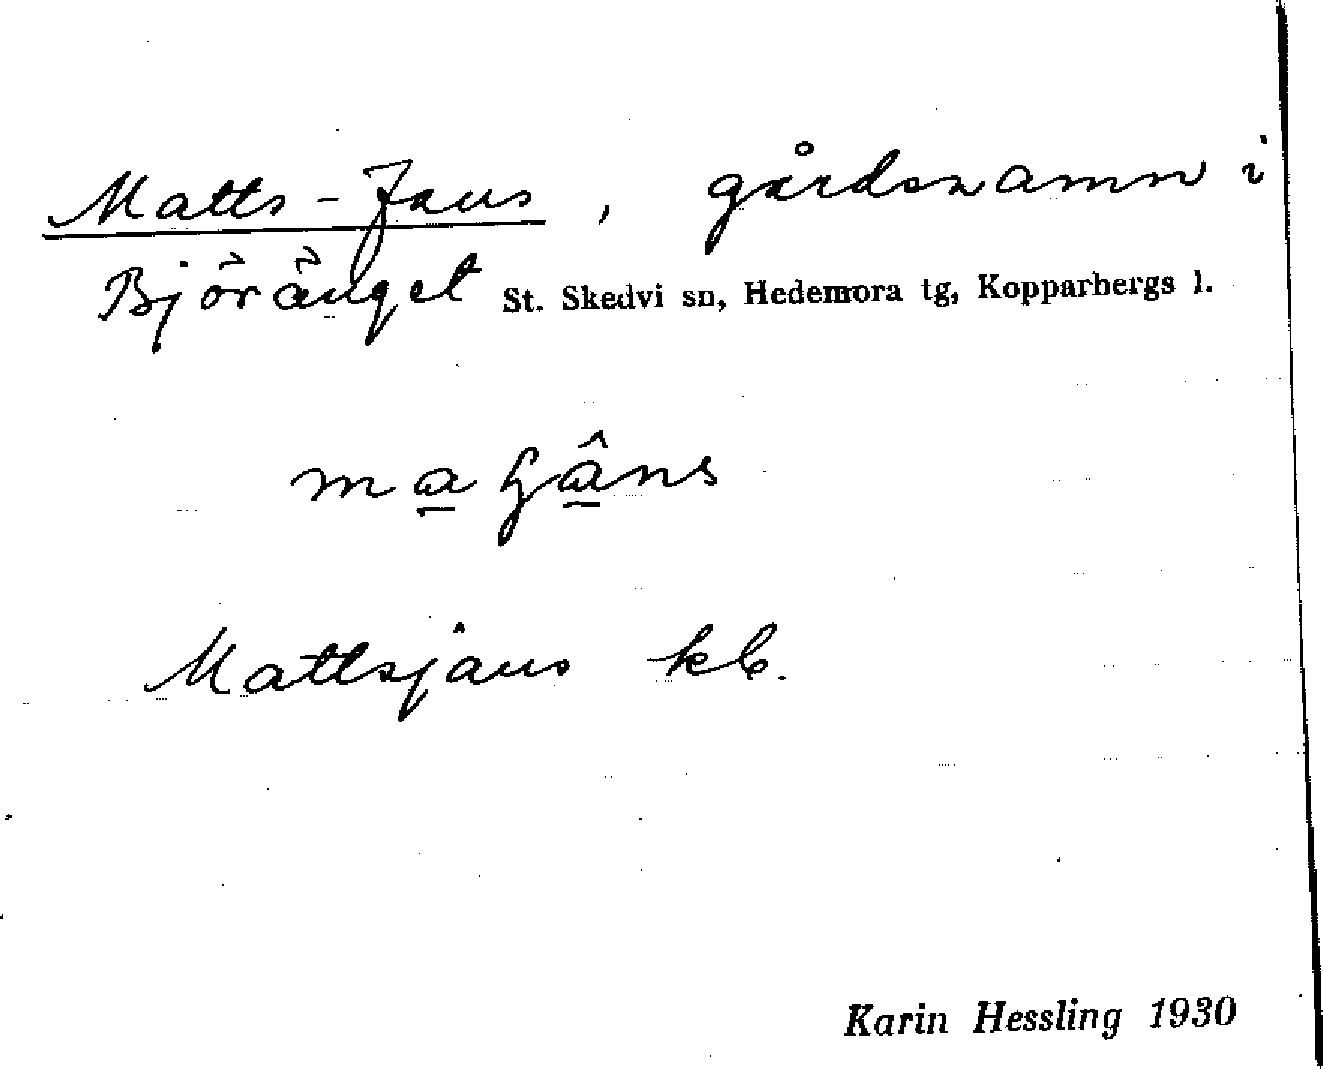 Matts-Jans, gårdsnamn i
Björänget St. Skedvi sn, Hedemora tg, Kopparbergs l.
Mattsjåns kb.
Karin Hessling 1930